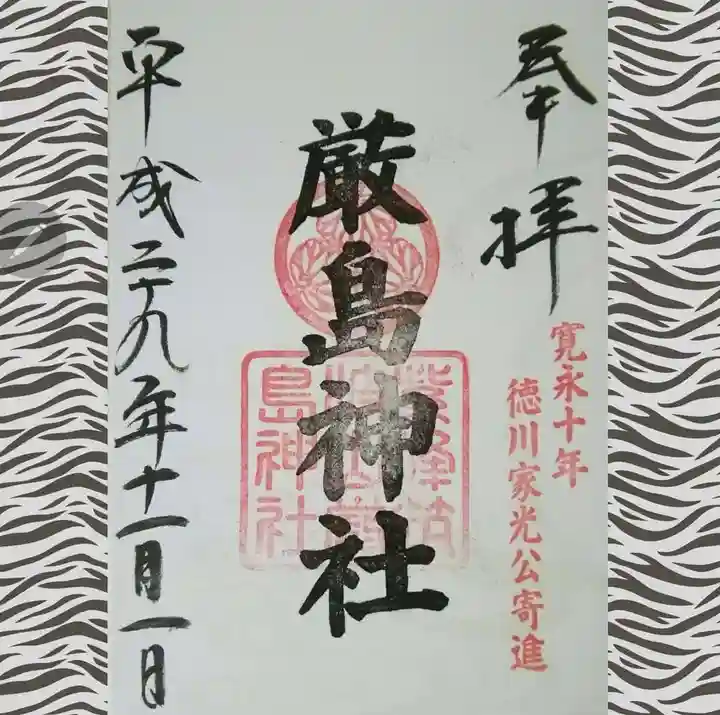 奉拝
寛永十年
徳川家光公寄進
厳島神社
島神社
平成二十九年十一月一日